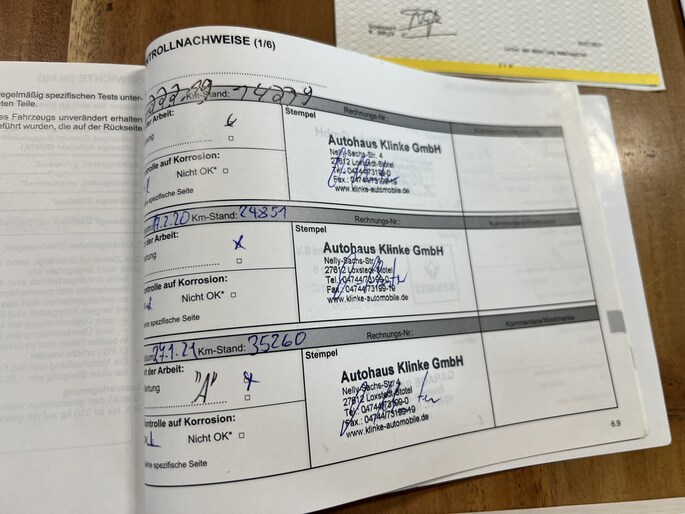 NTROLLNACHWEISE (1/6)
egelmäßig spezifischen Tests unter-
eten Teile.
es Fahrzeugs unverändert erhalten
eführt wurden, die auf der Rückseite
Km-Stand: 14279
Rechnungs-Nr.:
der Arbeit:
Stempel
Autohaus Klinke GmbH
Nelly-Sachs-Str. 4
27612 Loxstedt-Stotel
Tel.: 04744/73199-0
Fax.: 04744/73199-19
www.klinke-automobile.de
rtung
ntrolle auf Korrosion:
Nicht OK*
ne spezifische Seite
.2.20 Km-Stand: 24851
Rechnungs-Nr.:
der Arbeit:
Stempel
Autohaus Klinke GmbH
Nelly-Sachs-Str. 4
27612 Loxstedt-Stotel
Tel.: 04744/73199-0
Fax.: 04744/73199-19
www.klinke-automobile.de
rtung
ntrolle auf Korrosion:
Nicht OK*
ne spezifische Seite
tum: 27.1.21 Km-Stand: 35260
Rechnungs-Nr.:
Kommentare/Vermerke
t der Arbeit:
Stempel
"A"
Autohaus Klinke GmbH
Nelly-Sachs-Str. 4
27612 Loxstedt-Stotel
Tel.: 04744/73199-0
Fax.: 04744/73199-19
www.klinke-automobile.de
artung
ntrolle auf Korrosion:
Nicht OK*
ehe spezifische Seite
6.9